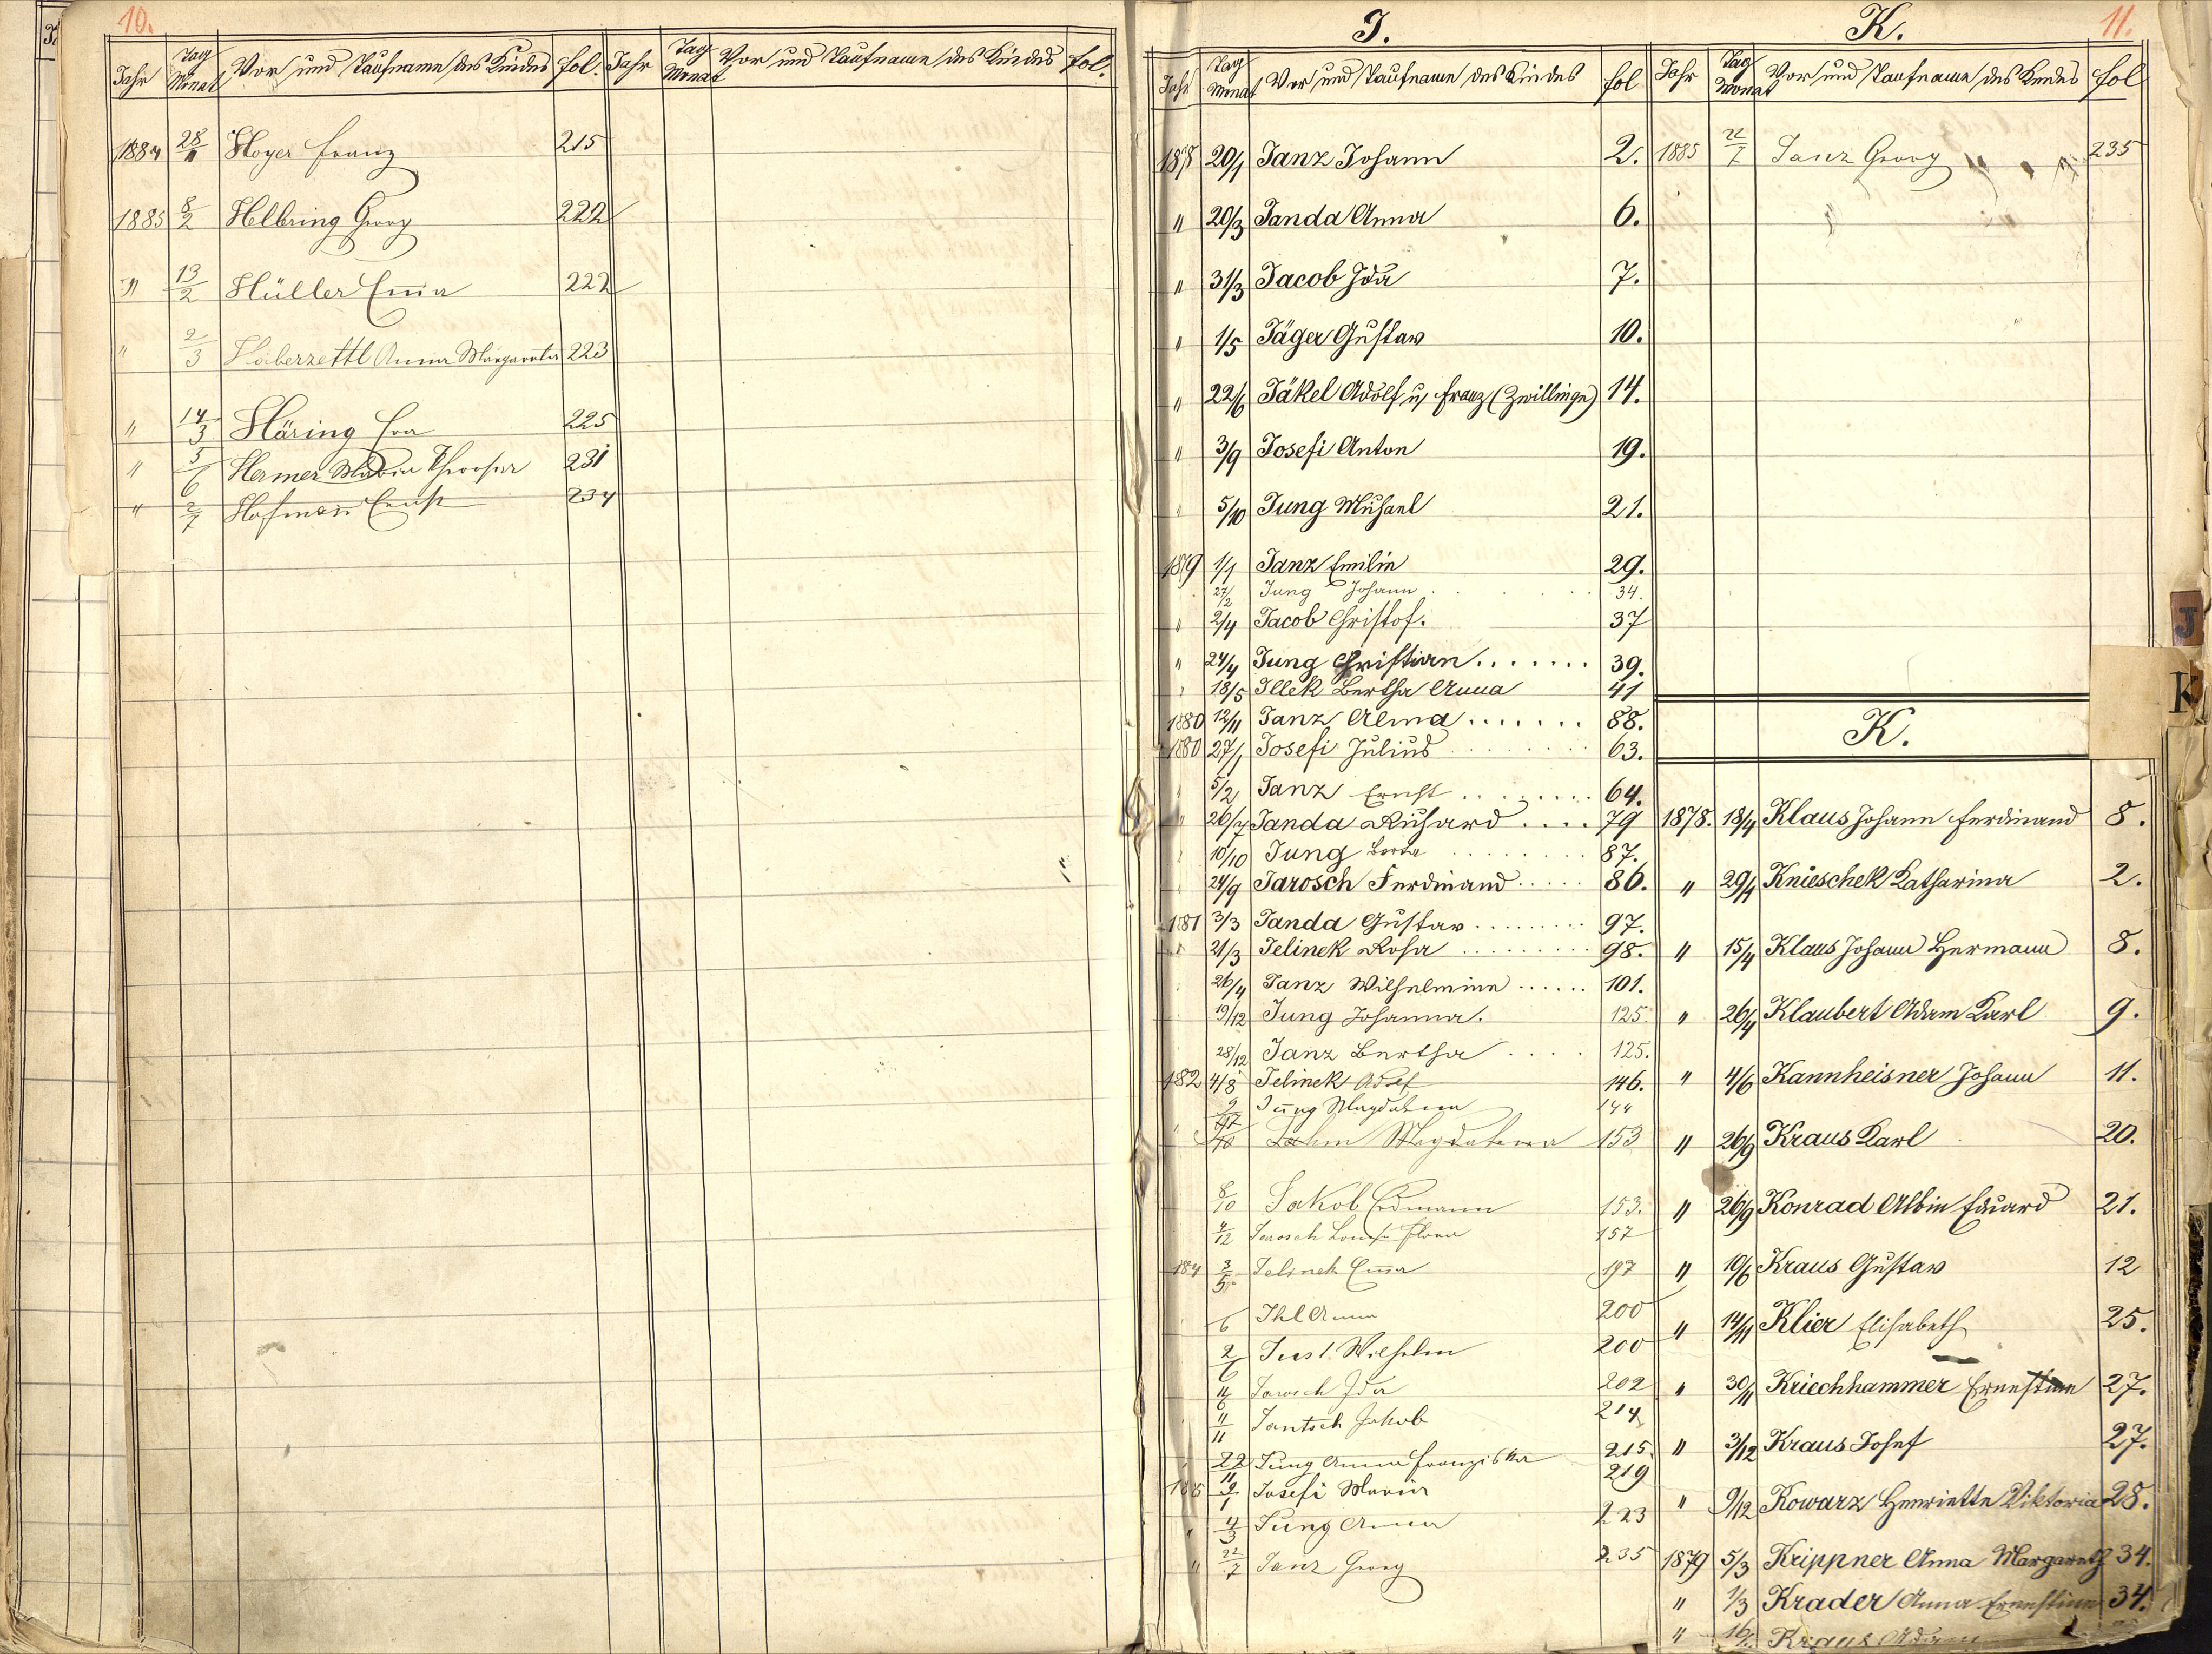 10.
Jahr Tag Monat Vor und Taufname des Kindes fol. Jahr Tag Monat Vor und Taufname des Kindes fol.
1884 28/11 Hoyer Franz 215
1885 8/2 Helbring Georg 222
" 13/2 Hüller Em̄a 222
" 2/3 Haberzettl Anna Margareta 223
" 14/3 Häring Eva 225
" 5/6 Hermer Maria Theresia 231
" 2/7 Hofman̄ Ernst 234
J.
Jahr Tag Monat Vor und Taufname des Kindes fol
1878 20/1 Janz Johann 2.
" 20/3 Janda Anna 6.
" 31/3 Jacob Ida 7.
" 1/5 Jäger Gustav 10.
" 22/6 Jäkel Adolf u. Franz (Zwillinge) 14.
" 3/9 Josefi Anton 19.
" 5/10 Jung Michael 21.
1879 1/1 Janz Emilie 29.
27/2 Jung Johann 34.
" 2/4 Jacob Christof. 37
" 24/4 Jung Christian 39.
" 18/5 Illek Bertha Anna 41
1880 12/11 Janz Alma 88.
1880 27/1 Josefi Julius 63.
" 5/2 Janz Ernst 64.
" 26/7 Janda Richard 79
" 10/10 Jung Berta 87.
24/9 Jarosch Ferdinand 86.
181 3/3 Janda Gustav 97.
" 21/3 Jelinek Rosa 98.
26/4 Janz Wilhelmine 101.
19/12 Jung Johanna. 125.
28/12 Janz Bertha 125.
182 4/8 Jelinek Adolf 146.
Jung Magdalena 144
Magdalena 153
8/10 Jakob Erdmann 153.
4/12 Jarosch Louise Flora 157
184 3/5 Jelinek Em̄a 197
6 Ihl Anna 200
2/6 Just Wilhelm 200
14/6 Jarosch Ida 202
11/11 Jantsch Jakob 214
22/11 Jung Anna Franziska 215.
185 2/1 Josefi Maria 219
" 4/3 Jung Anna 223
" 22/7 Janz Georg 235
K. 11.
Jahr Tag Monat Vor und Taufname des Kindes fol
1885 22/7 Janz Georg 235
J
K
K.
1878. 18/4 Klaus Johann Ferdinand 8.
" 29/4 Knieschek Katharina 2.
" 15/4 Klaus Johann Hermann 8.
" 26/4 Klaubert Adam Karl 9.
" 4/6 Kannheisner Johann 11.
" 26/9 Kraus Karl 20.
" 26/9 Konrad Albin Eduard 21.
" 10/6 Kraus Gustav 12
" 14/11 Klier Elisabeth 25.
" 30/11 Kriechhammer Ernestine 27.
" 3/12 Kraus Josef 27.
" 9/12 Kowarz Henriette Viktoria 28.
1879 5/3 Krippner Anna Margareth 34.
" 1/3 Krader Anna Ernestine 34.
" 16/ Kraus Adam